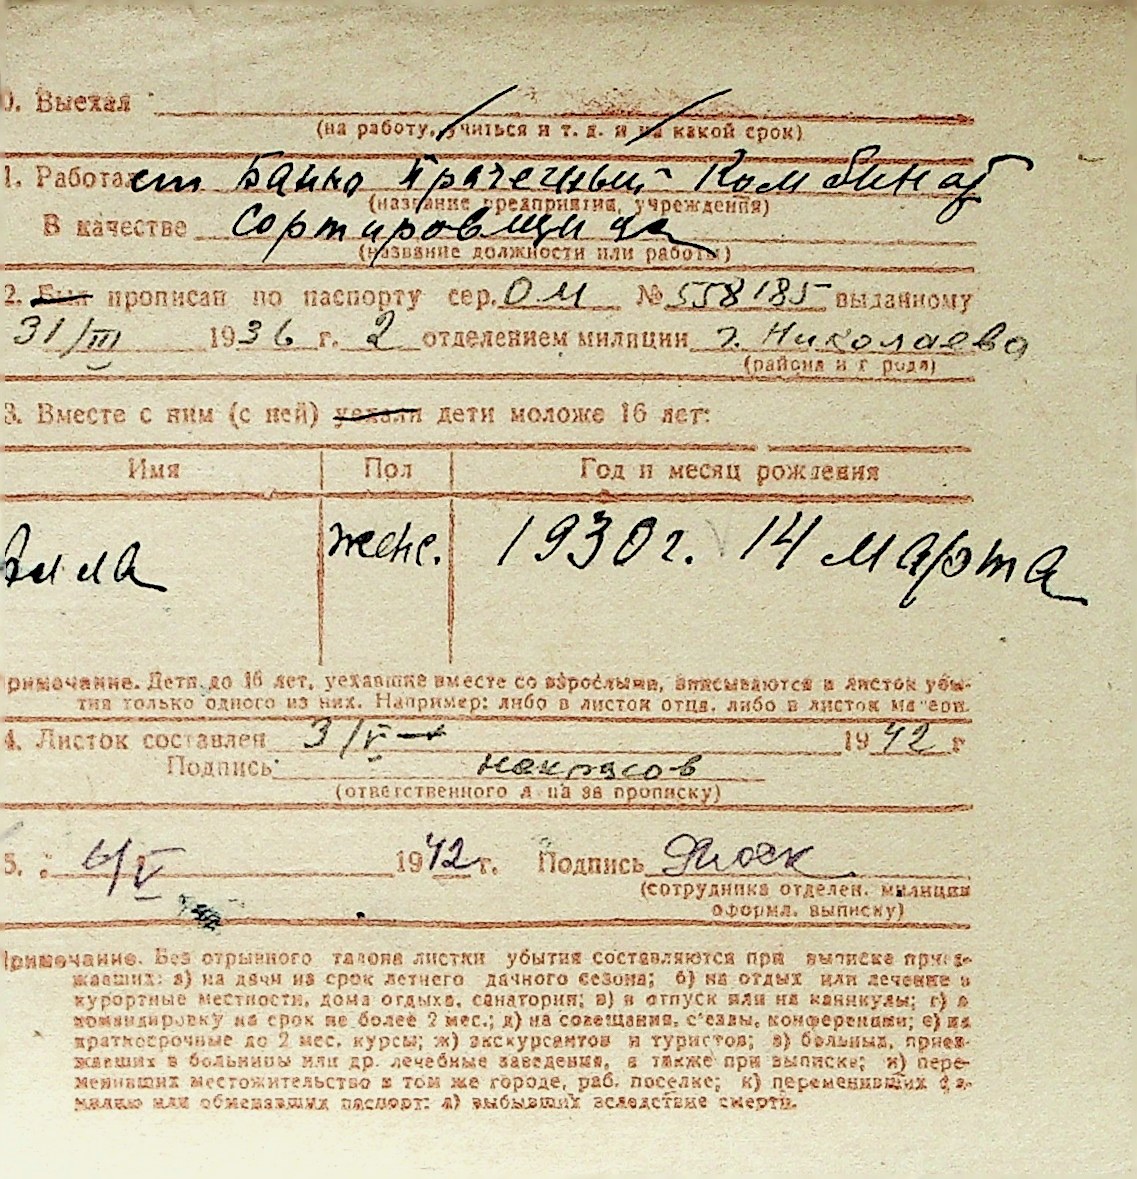 0. Выехал
(на работу, учиться и т. д. и на какой срок)
1. Работает Банно Прачечный Комбинат
(название предприятия, учреждения)
В качестве сортировщица
(название должности или работы)
2. Был прописан по паспорту сер. ОМ № 558185 выданному
31/III 1936 г. 2 отделением милиции г. Николаева
(района и города)
3. Вместе с ним (с ней) уехали дети моложе 16 лет:
Имя Пол Год и месяц рождения
женс. 1930 г. 14 марта
Примечание. Дети до 16 лет, уехавшие вместе со взрослыми, вписываются в листок убы-
тия только одного из них. Например: либо в листок отца, либо в листок матери.
4. Листок составлен 3/V 1942 г
Подпись Некрасов
(ответственного лица за прописку)
5. 6/V 1942 г. Подпись
(сотрудника отделен. милиции
оформл. выписку)
Примечание. Без отрывного талона листки убытия составляются при выписке приез-
жавших: а) на дачи на срок летнего дачного сезона; б) на отдых или лечение в
курортные местности, дома отдыха, санатории; в) в отпуск или на каникулы; г) в
командировку на срок не более 2 мес.; д) на совещания, с'езды, конференции; е) на
краткосрочные до 2 мес. курсы; ж) экскурсантов и туристов; з) больных, приез-
жавших в больницы или др. лечебные заведения, а также при выписке; и) пере-
менивших местожительство в том же городе, раб. поселке; к) переменивших фа-
милию или обменявших паспорт: л) выбывших вследствие смерти.